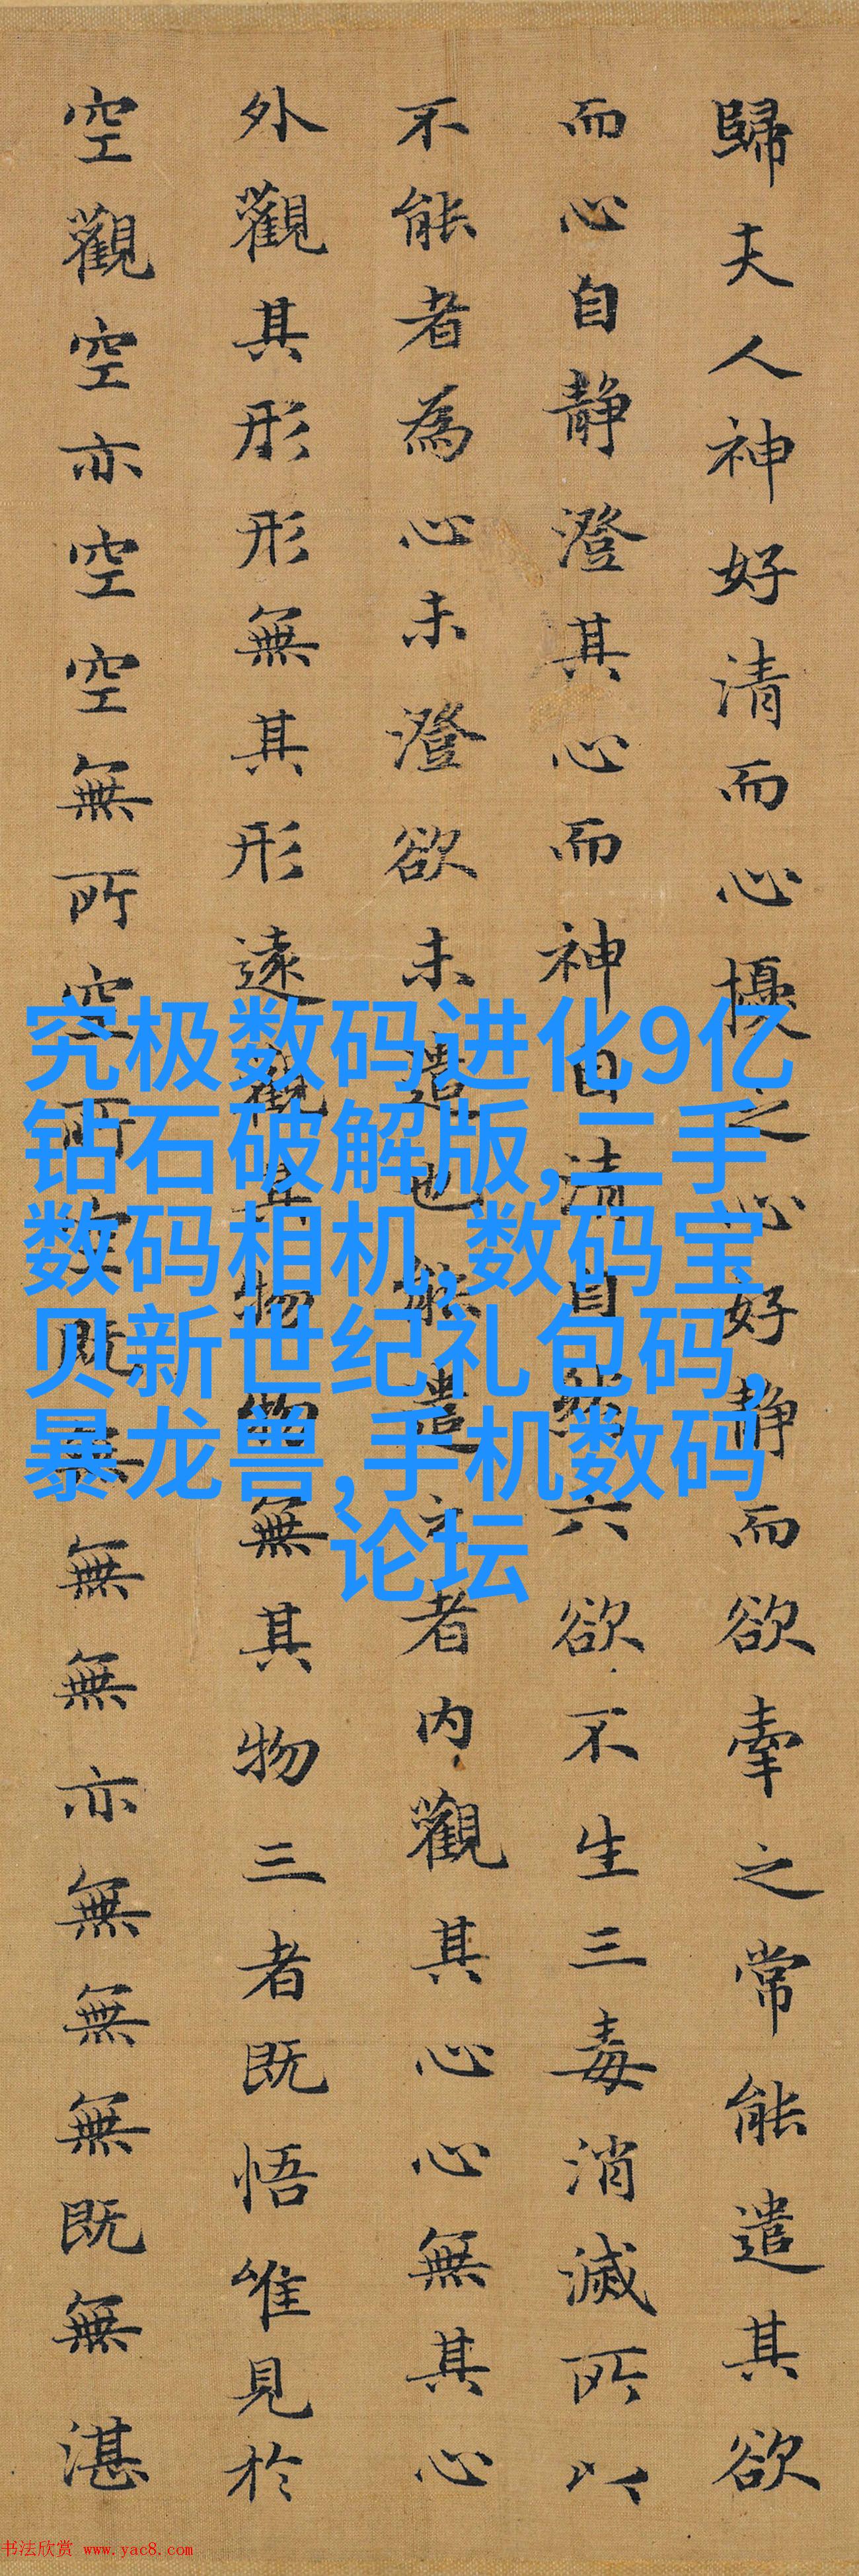 歸夫人神好清而心擾之心好静而欲牽之常能遣其欲
而心自静澄其心而神自清自然六欲不生三毒消滅所以
不能者為心未澄欲未遣也能遣之者内觀其心心無其心
外觀其形形無其形遠觀其物物無其物三者既悟唯見於
空觀空亦空空無所空所空既無無無亦無無無既無湛
究极数码进化9亿
钻石破解版,二手
数码相机,数码宝
贝新世纪礼包码,
暴龙兽,手机数码
论坛
书法欣赏 www.yac8.com